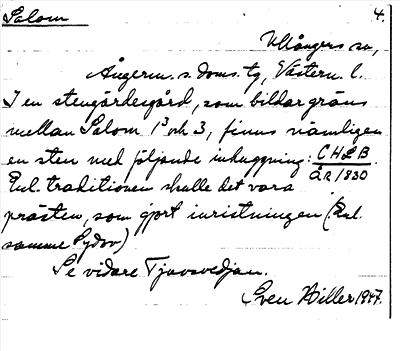 Salom 4.
Ullångers sn,
Ångerm. s. doms. tg, Västern. l.
I en stengärdesgård, som bildar gräns
mellan Salom 1³ och 3, finns nämligen
en sten med följande inhuggning: CHLB
Enl. traditionen skulle det vara ÅR 1830
prästen, som gjort inristningen (Enl.
samme Sydow)
Se vidare Tjuvsvedjan.
Sven Hiller 1947.